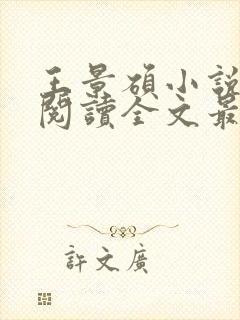 王景碩小說
閱讀全文最
許文廣